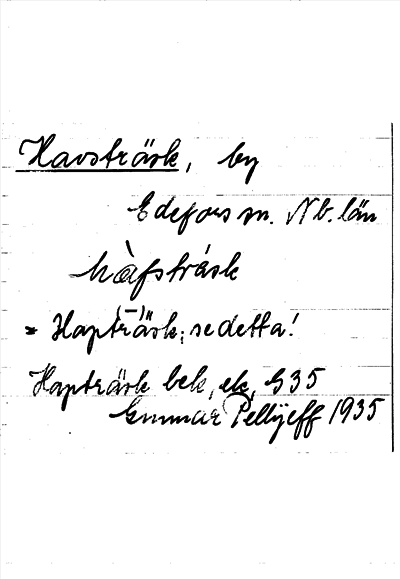 Havsträsk, by
Edefors sn. Nb. län
hàfstrásk
= Hapt(-)räsk; se detta!
Hapträsk bek, ek, G35
Gunnar Pellijeff 1935